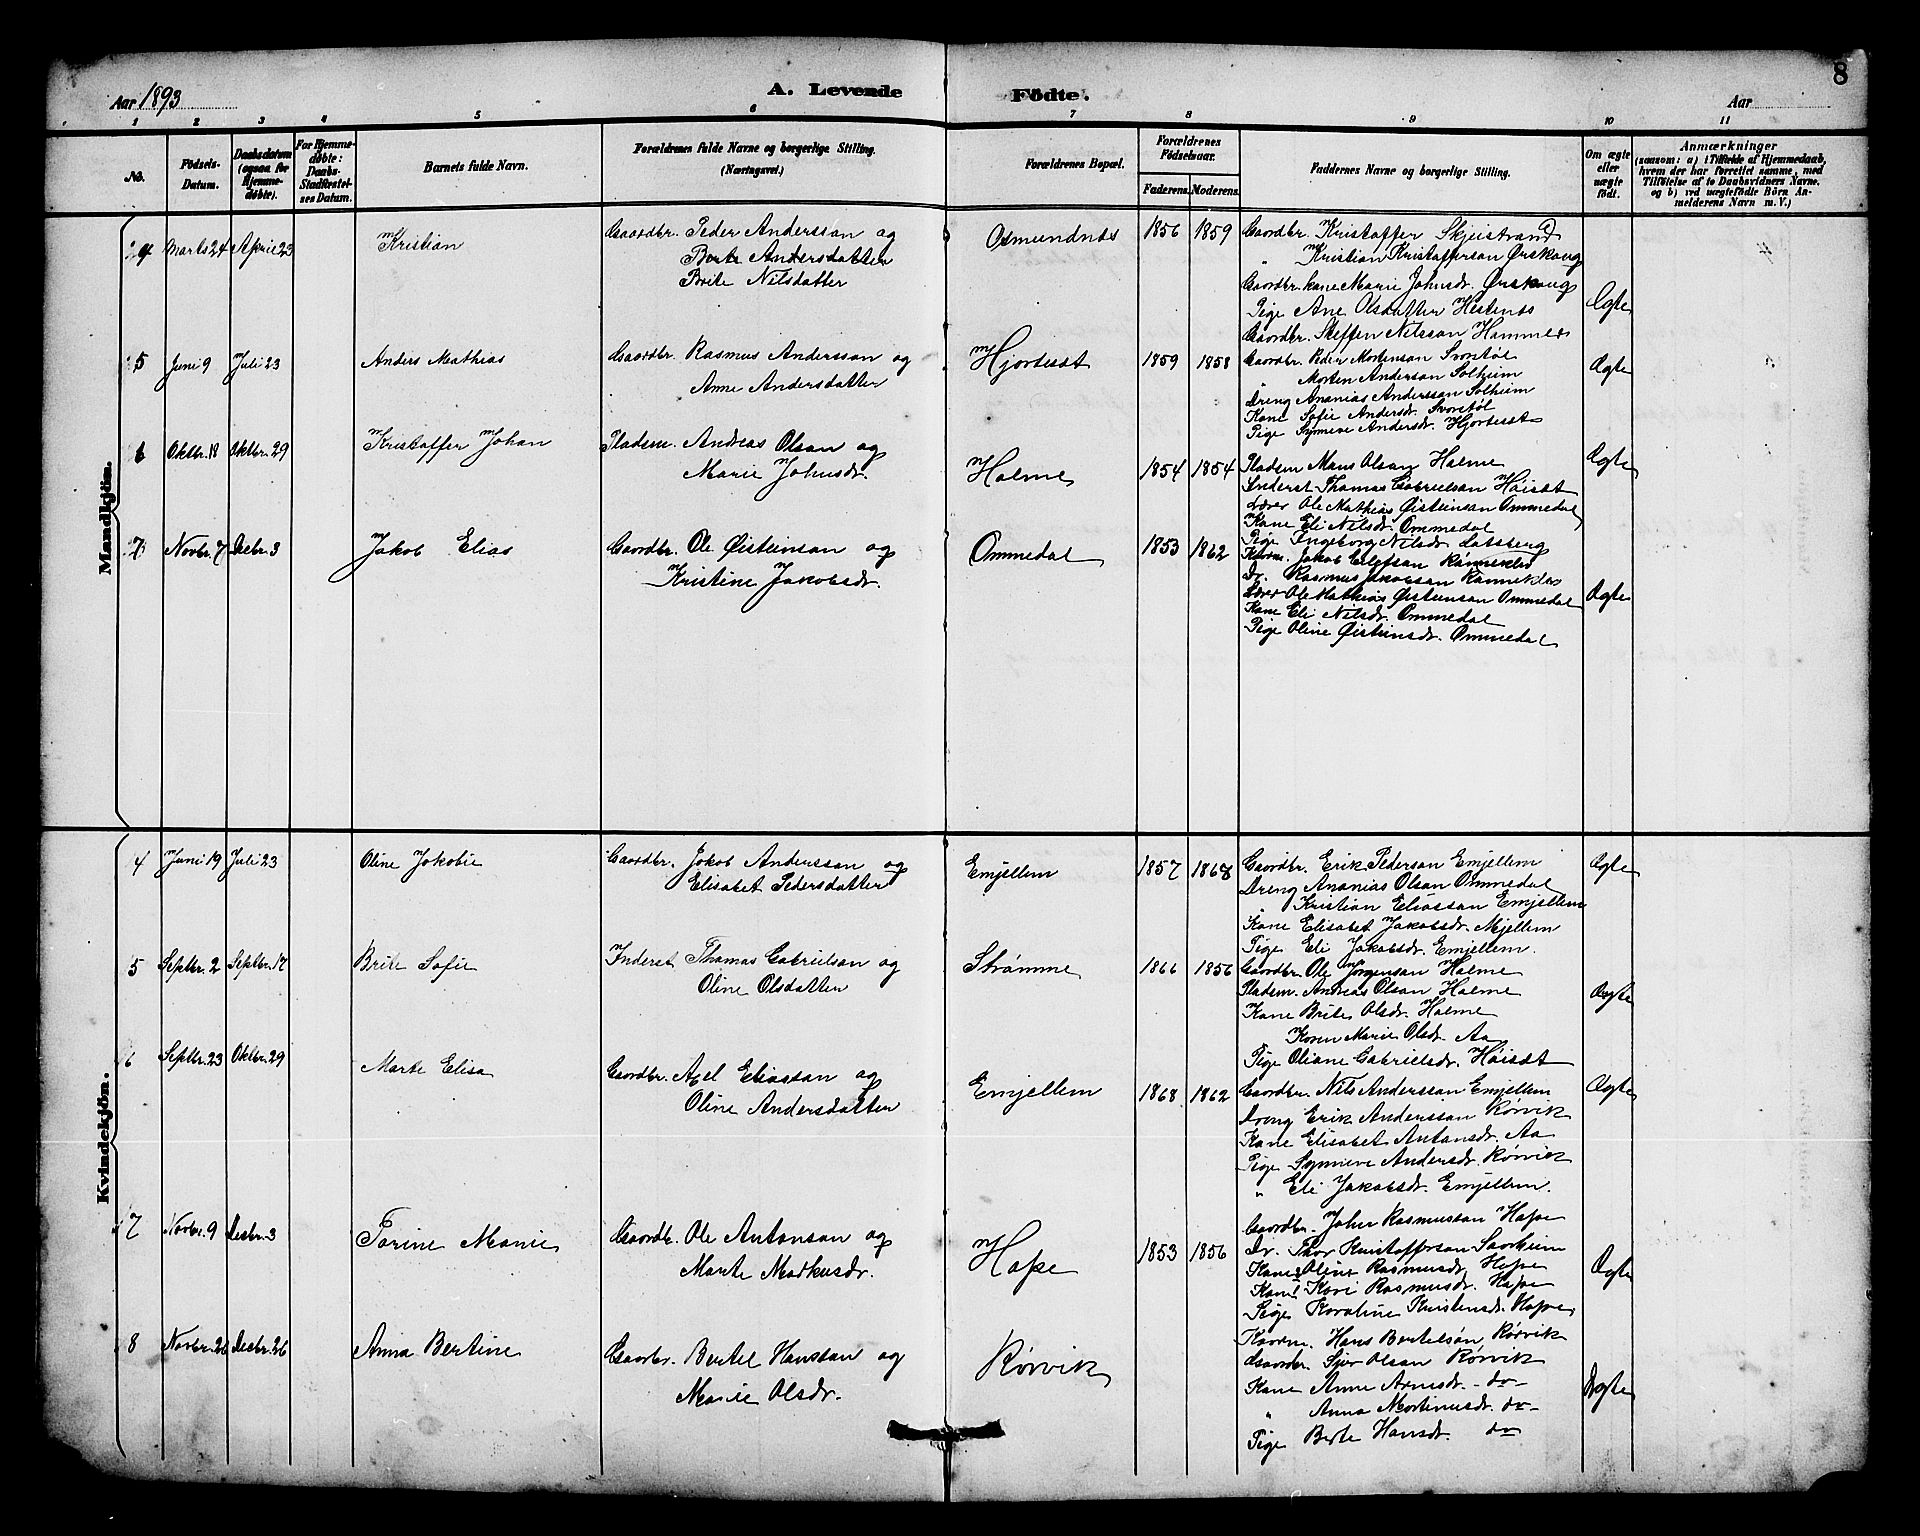 8
Aar 1893
A. Levende Födte.
Aar
1 2 3 4 5 6 7 8 9 10 11
No.
Födsels-Datum.
Daabsdatum (ogsaa for Hjemme-döbte).
For Hjemme-döbte: Daabs-Stadfæstel-ses Datum.
Barnets fulde Navn.
Forældrenes fulde Navne og borgerlige Stilling. (Næringsvei.)
Forældrenes Bopæl.
Forældrenes Födselsaar.
Faderens. Moderens.
Faddernes Navne og borgerlige Stilling.
Om ægte eller uægte födt.
Anmærkninger
(saasom: a) i Tilfælde af Hjemmedaab, hvem der har forrettet samme, med Tilföielse af to Daabsvidners Navne, og b) ved uægtefödte Börn An-melderens Navn m. V.)
Mandkjön.
4 Marts 24 April 23 Kristian
Gaardbr. Peder Anderssan og
Berte Andersdatter
Brite Nilsdatter
Osmundnes 1856 1859
Gaardbr. Kristoffer Skjeistrand
" Kristian Kristoffersan Ørskoug
Gaardbr. kane Marie Johnsdr. Ørskoug
Pige Ane Olsdatter Hestenes
Gaardbr. Steffen Nilssan Hammer
Ægte
5 Juni 9 Juli 23 Anders Mathias
Gaardbr. Rasmus Anderssan og
Anne Andersdatter
Hjorteset 1859 1858
Gaardbr. Peder Mortensan Svortøl
" Morten Andersan Solheim
Dreng Ananias Anderssan Solheim
Kane Sofie Andersdr. Svortøl
Pige Synneve Andersdr. Hjorteset
Ægte
6 Oktbr. 18 Oktbr. 29 Kristoffer Johan
Pladsm. Andreas Olsan og
Marie Johnsdr.
Holme 1854 1854
Pladsm Mons Olsan Holme
Inderst Thomas Gabrielsan Høiset
Lærer Ole Mathias Øisteinsan Ommedal
Kane Eli Nilsdr. Ommedal
Pige Ingeborg Nilsdr. Lotsberg
Ægte
7 Novbr. 7 Desbr. 3 Jakob Elias
Gaardbr. Ole Øisteinsan og
Kristine Jakobsdr.
Ommedal 1853 1862
Kaarm. Jakob Elefsan Rønnekles
Dr. Rasmus Jakobsan Rønnekles
Lærer Ole Mathias Øisteinsan Ommedal
Kane Eli Nilsdr. Ommedal
Pige Oline Øisteinsdr. Ommedal
Ægte
Kvindekjön.
4 Juni 19 Juli 23 Oline Jakobie
Gaardbr. Jakob Anderssan og
Elisabet Pedersdatter
Emjellem 1857 1868
Gaardbr. Erik Pedersan Emjellem
Dreng Ananias Olsan Ommedal
" Kristian Eliassan Emjellem
Kane Elisabet Jakobsdr. Mjellem
Pige Eli Jakobsdr. Emjellem.
Ægte
5 Septbr. 2 Septbr. 17 Brite Sofie
Inderst Thomas Gabrielsan og
Oline Olsdatter
Strømme 1866 1856
Gaardbr. Ole Jørgensan Holme
Pladsm. Andreas Olsan Holme
Kane Brite Olsdr. Holme
Karen Marie Olsdr. Aa
Pige Oliane Gabrielsdr. Høiset
Ægte
6 Septbr. 23 Oktbr. 29 Marte Elisa
Gaardbr. Axel Eliassan og
Oline Andersdatter
Emjellem 1868 1862
Gaardbr. Nils Anderssan Emjellem
Dreng Erik Anderssan Rørvik
Kane Elisabet Antonsdr. Aa
Pige Synneve Andersdr. Rørvik
" Eli Jakobsdr. Emjellem.
Ægte
7 Novbr. 9 Desbr. 3 Torine Marie
Gaardb. Ole Antonsan og
Marte Markusdr.
Hope 1853 1856
Gaardbr. John Rasmussan Hope
Dr. Thor Kristoffersan Saorheim
Kane Oline Rasmusdr. Hope
Kane Kari Rasmusdr. Hope
Pige Karoline Kristensdr. Hope
Ægte
8 Novbr. 26 Desbr. 26 Anna Bertine
Gaardbr. Bertel Hanssan og
Marie Olsdr.
Rørvik
Kaarm. Hans Bertelsan Rørvik
Gaardbr. Sjur Olsan Rørvik
Kane Anne Arnesdr. do
" Anna Mortinusdr. do
Pige Berte Hansdr. do
Ægte